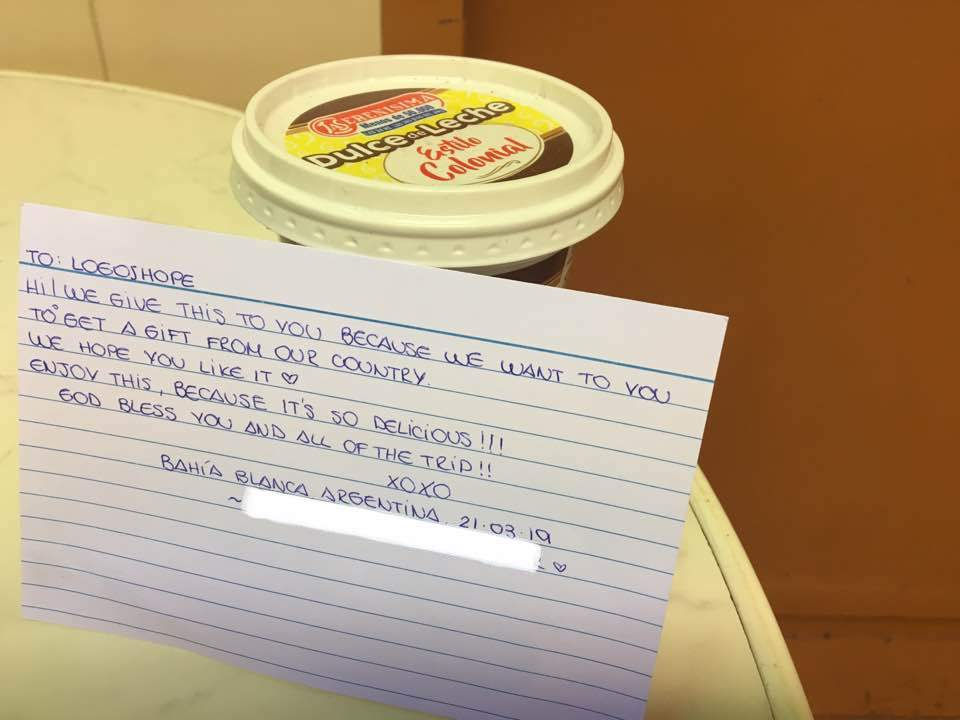 LA SERENISIMA
Dulce de Leche
Estilo
Colonial
TO: LOGOSHOPE
HI! WE GIVE THIS TO YOU BECAUSE WE WANT TO YOU
TO GET A GIFT FROM OUR COUNTRY.
WE HOPE YOU LIKE IT ♡
ENJOY THIS, BECAUSE IT'S SO DELICIOUS!!!
GOD BLESS YOU AND ALL OF THE TRIP!!
XOXO
BAHÍA BLANCA ARGENTINA. 21.03.19
~ ♡